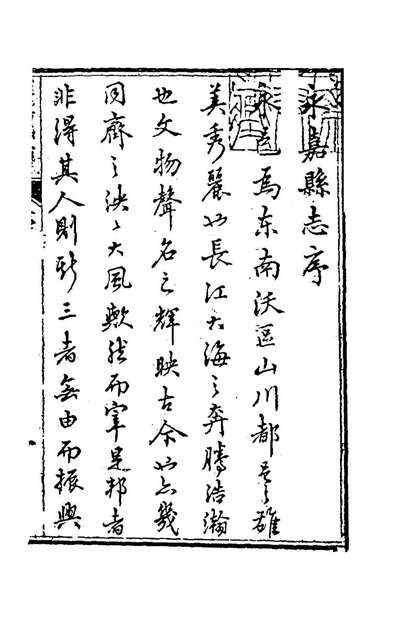 永嘉縣志序
永嘉為东南沃區山川都邑之雄
美秀麗以長江大海之奔騰浩瀚
也文物聲名之輝映古今以亦幾
同齊之泱泱大風歟然而宰是邦者
非得其人則斯三者無由而振興